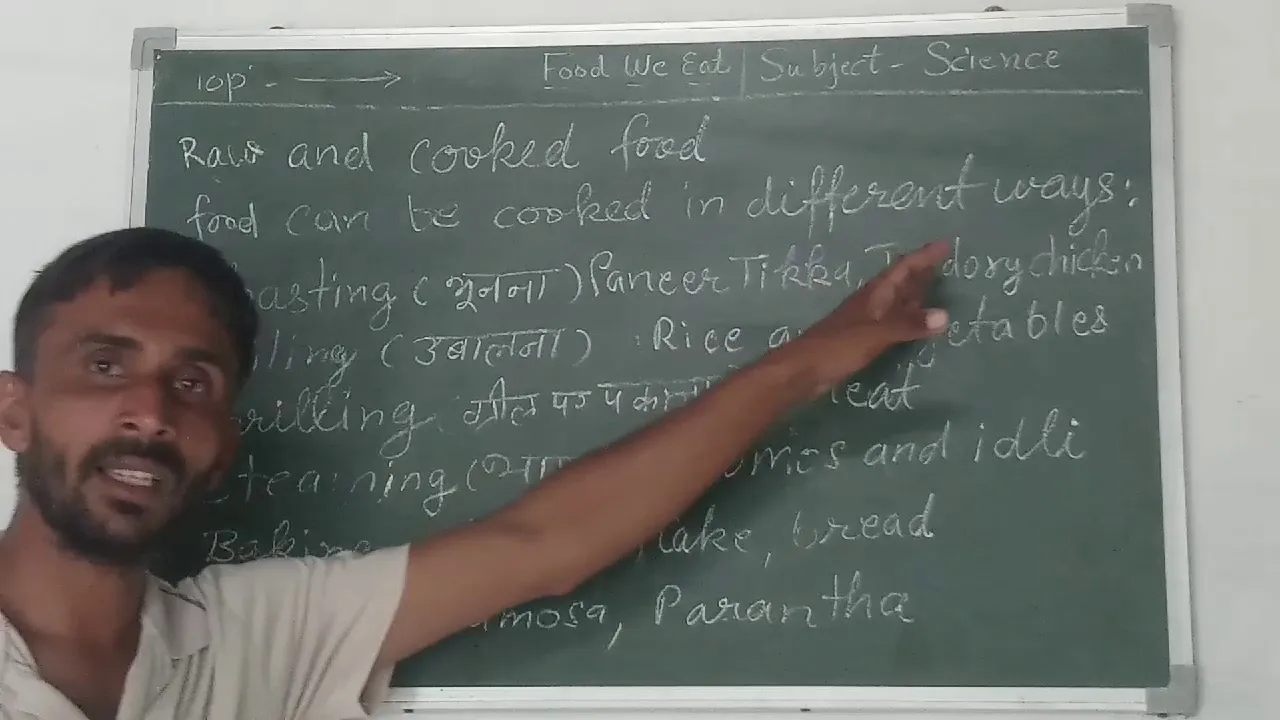 TOP - → Food We Eat | Subject - Science
Raw and cooked food
food can be cooked in different ways:
asting (भूनना) Paneer Tikka, T dory chicken
ling (उबालना) : Rice a getables
rilling ग्रील पर पकाना eat
steaming (भा omos and idli
Baking cake, bread
amosa, Parantha